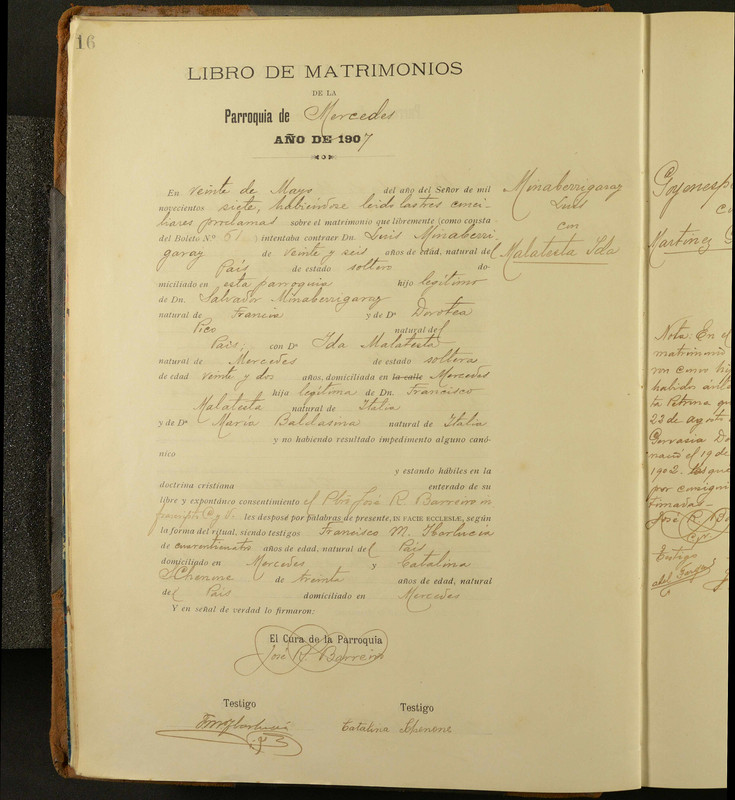 16
LIBRO DE MATRIMONIOS
DE LA
Parroquia de Mercedes
AÑO DE 1907
En veinte de Mayo del año del Señor de mil
novecientos siete, habiendose leido las tres conci-
liares proclamas sobre el matrimonio que libremente (como consta
del Boleto N.º 61 intentaba contraer Dn. Luis Minaberri-
garay de veinte y seis años de edad, natural del
País de estado soltero do-
miciliado en esta parroquia hijo legítimo
de Dn. Salvador Minaberrigaray
natural de Francia y de Dª Dorotea
Pico natural del
País; con Dª Ida Malatesta
natural de Mercedes de estado soltera
de edad veinte y dos años, domiciliada en la calle Mercedes
hija legítima de Dn. Francisco
Malatesta natural de Italia
y de Dª María Baldasina natural de Italia
y no habiendo resultado impedimento alguno canó-
nico
y estando hábiles en la
doctrina cristiana enterado de su
libre y expontáneo consentimiento el Pbro José R. Barreiro
les desposé por palabras de presente, IN FACIE ECCLESIÆ, según
la forma del ritual, siendo testigos Francisco M. Iborlucia
de cuarenticuatro años de edad, natural del País
domiciliado en Mercedes y Catalina
Schenone de treinta años de edad, natural
del País domiciliado en Mercedes
Y en señal de verdad lo firmaron:
El Cura de la Parroquia
José R. Barreiro
Testigo Testigo
Catalina Schenone
Minaberrigaray
Luis
con
Malatesta Ida
Martinez
Nota: En el
matrimonio
22 de agosto
Gervasia
nació el 19 de
1902.
por consigui
José R. B
Testigo